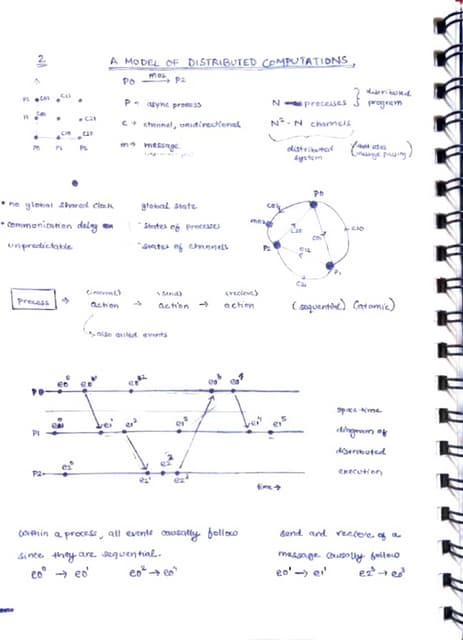 2
A MODEL OF DISTRIBUTED COMPUTATIONS.
P0 —m02→ P2
P2 C02 C12
P1 C01 C21
C10 C20
P0 P1 P2
P = async process
C = channel, unidirectional
m = message
N processes } distributed program
N² - N channels
distributed system (that uses message passing)
• no global shared clock
• communication delay
unpredictable
global state
states of processes
states of channels
P0
C02
m02
C20
C01
C10
P2
C12
P1
C21
Process → (internal) action → (send) action → (receive) action (sequential) (atomic)
also called events
P0 e0⁰ e0¹ e0² e0³ e0⁴
P1 e1¹ e1² e1³ e1⁴ e1⁵
P2 e2⁰ e2¹ e2² e2³
time →
space-time
diagram of
distributed
execution
within a process, all events causally follow
since they are sequential.
e0⁰ → e0¹
send and receive of a
message causally follow
e0¹ → e1¹ e2³ → e0³